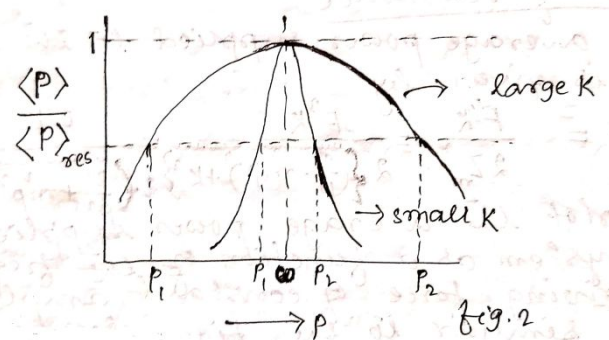 1
⟨P⟩
⟨P⟩res
large K
small K
P₁ P₁ ω P₂ P₂
⟶ P
fig. 2